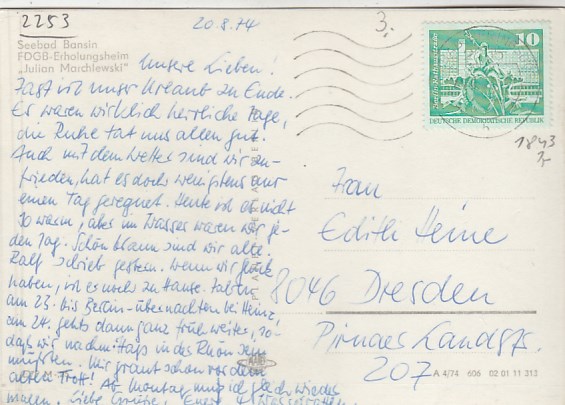 2253
20.8.74
3,-
Seebad Bansin
FDGB-Erholungsheim
„Julian Marchlewski"
Unsere Lieben!
Fast ist unser Urlaub zu Ende.
Es waren wirklich herrliche Tage,
die Ruhe tat uns allen gut.
Auch mit dem Wetter sind wir zu-
frieden, hat es doch wenigstens nur
einen Tag geregnet. Heute ist es nicht
so warm, aber im Wasser waren wir je-
den Tag. Schön braun sind wir alle.
Ralf schrieb gestern. Wenn wir Glück
haben, ist er noch zu Hause. Fahren
am 23. bis Berlin - übernachten bei Heinz,
am 24. gehts dann ganz früh weiter, so-
daß wir nachm.
müßten. Mir graut schon vor dem
alten Trott! Ab Montag muß ich gleich wieder
Liebe Grüße, Eure
Berlin-Rathausstraße
10
DEUTSCHE DEMOKRATISCHE REPUBLIK
1843
Frau
Edith Heine
8046 Dresden
Pirnaer Landstr.
207
A 4/74 606 02 01 11 313